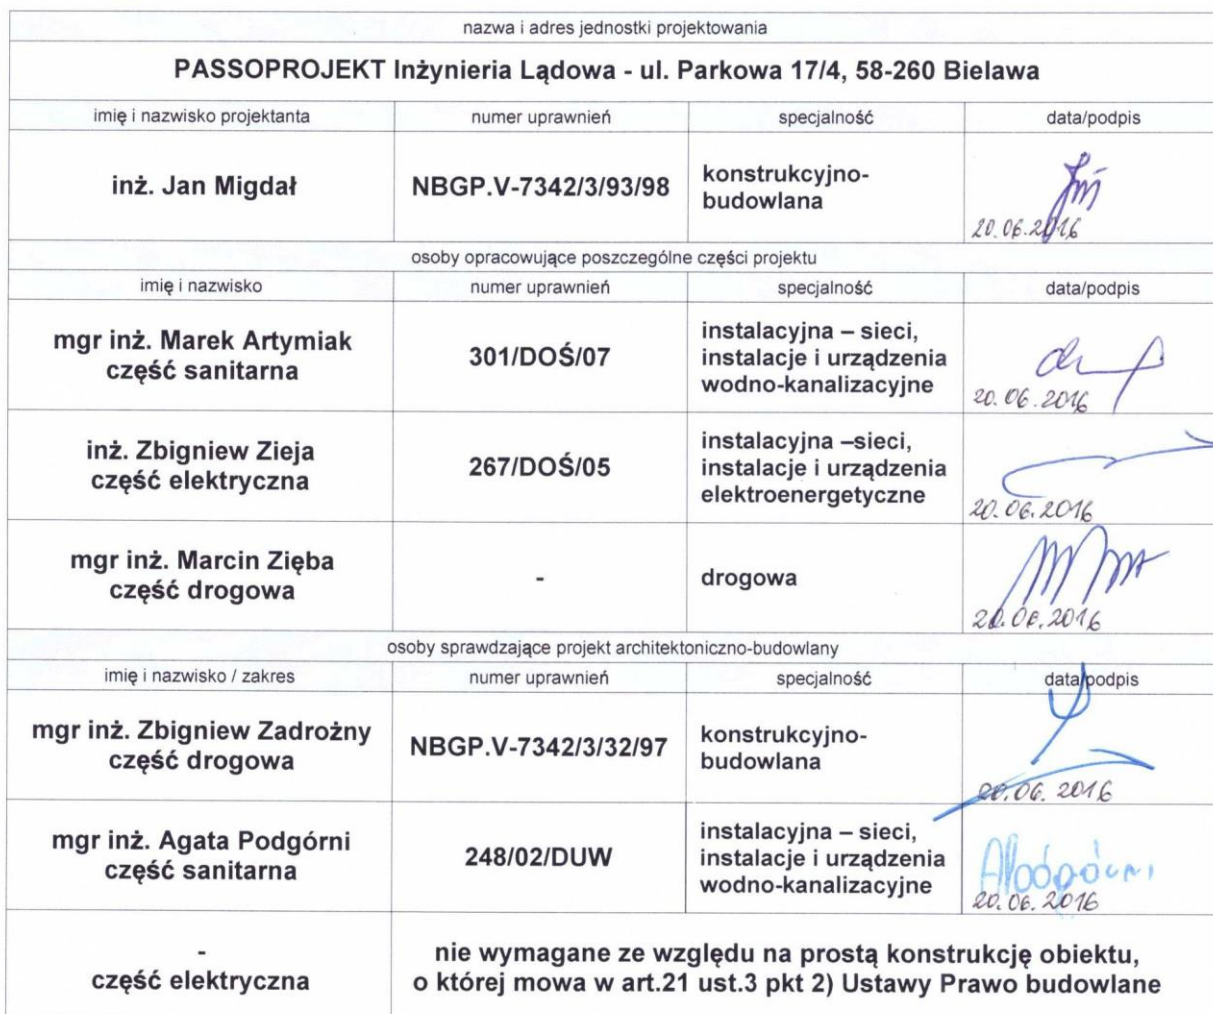 nazwa i adres jednostki projektowania
PASSOPROJEKT Inżynieria Lądowa - ul. Parkowa 17/4, 58-260 Bielawa
imię i nazwisko projektanta numer uprawnień specjalność data/podpis
inż. Jan Migdał NBGP.V-7342/3/93/98 konstrukcyjno-
budowlana
20.06.2016
osoby opracowujące poszczególne części projektu
imię i nazwisko numer uprawnień specjalność data/podpis
mgr inż. Marek Artymiak
część sanitarna
301/DOŚ/07
instalacyjna – sieci,
instalacje i urządzenia
wodno-kanalizacyjne
20.06.2016
inż. Zbigniew Zieja
część elektryczna
267/DOŚ/05
instalacyjna –sieci,
instalacje i urządzenia
elektroenergetyczne
20.06.2016
mgr inż. Marcin Zięba
część drogowa
-
drogowa
20.06.2016
osoby sprawdzające projekt architektoniczno-budowlany
imię i nazwisko / zakres numer uprawnień specjalność data/podpis
mgr inż. Zbigniew Zadrożny
część drogowa
NBGP.V-7342/3/32/97
konstrukcyjno-
budowlana
20.06.2016
mgr inż. Agata Podgórni
część sanitarna
248/02/DUW
instalacyjna – sieci,
instalacje i urządzenia
wodno-kanalizacyjne
APodgórni
20.06.2016
-
część elektryczna
nie wymagane ze względu na prostą konstrukcję obiektu,
o której mowa w art.21 ust.3 pkt 2) Ustawy Prawo budowlane